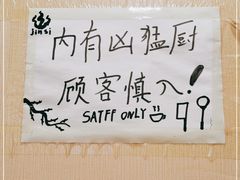 jinsi
内有凶猛厨
顾客慎入!
SATFF ONLY